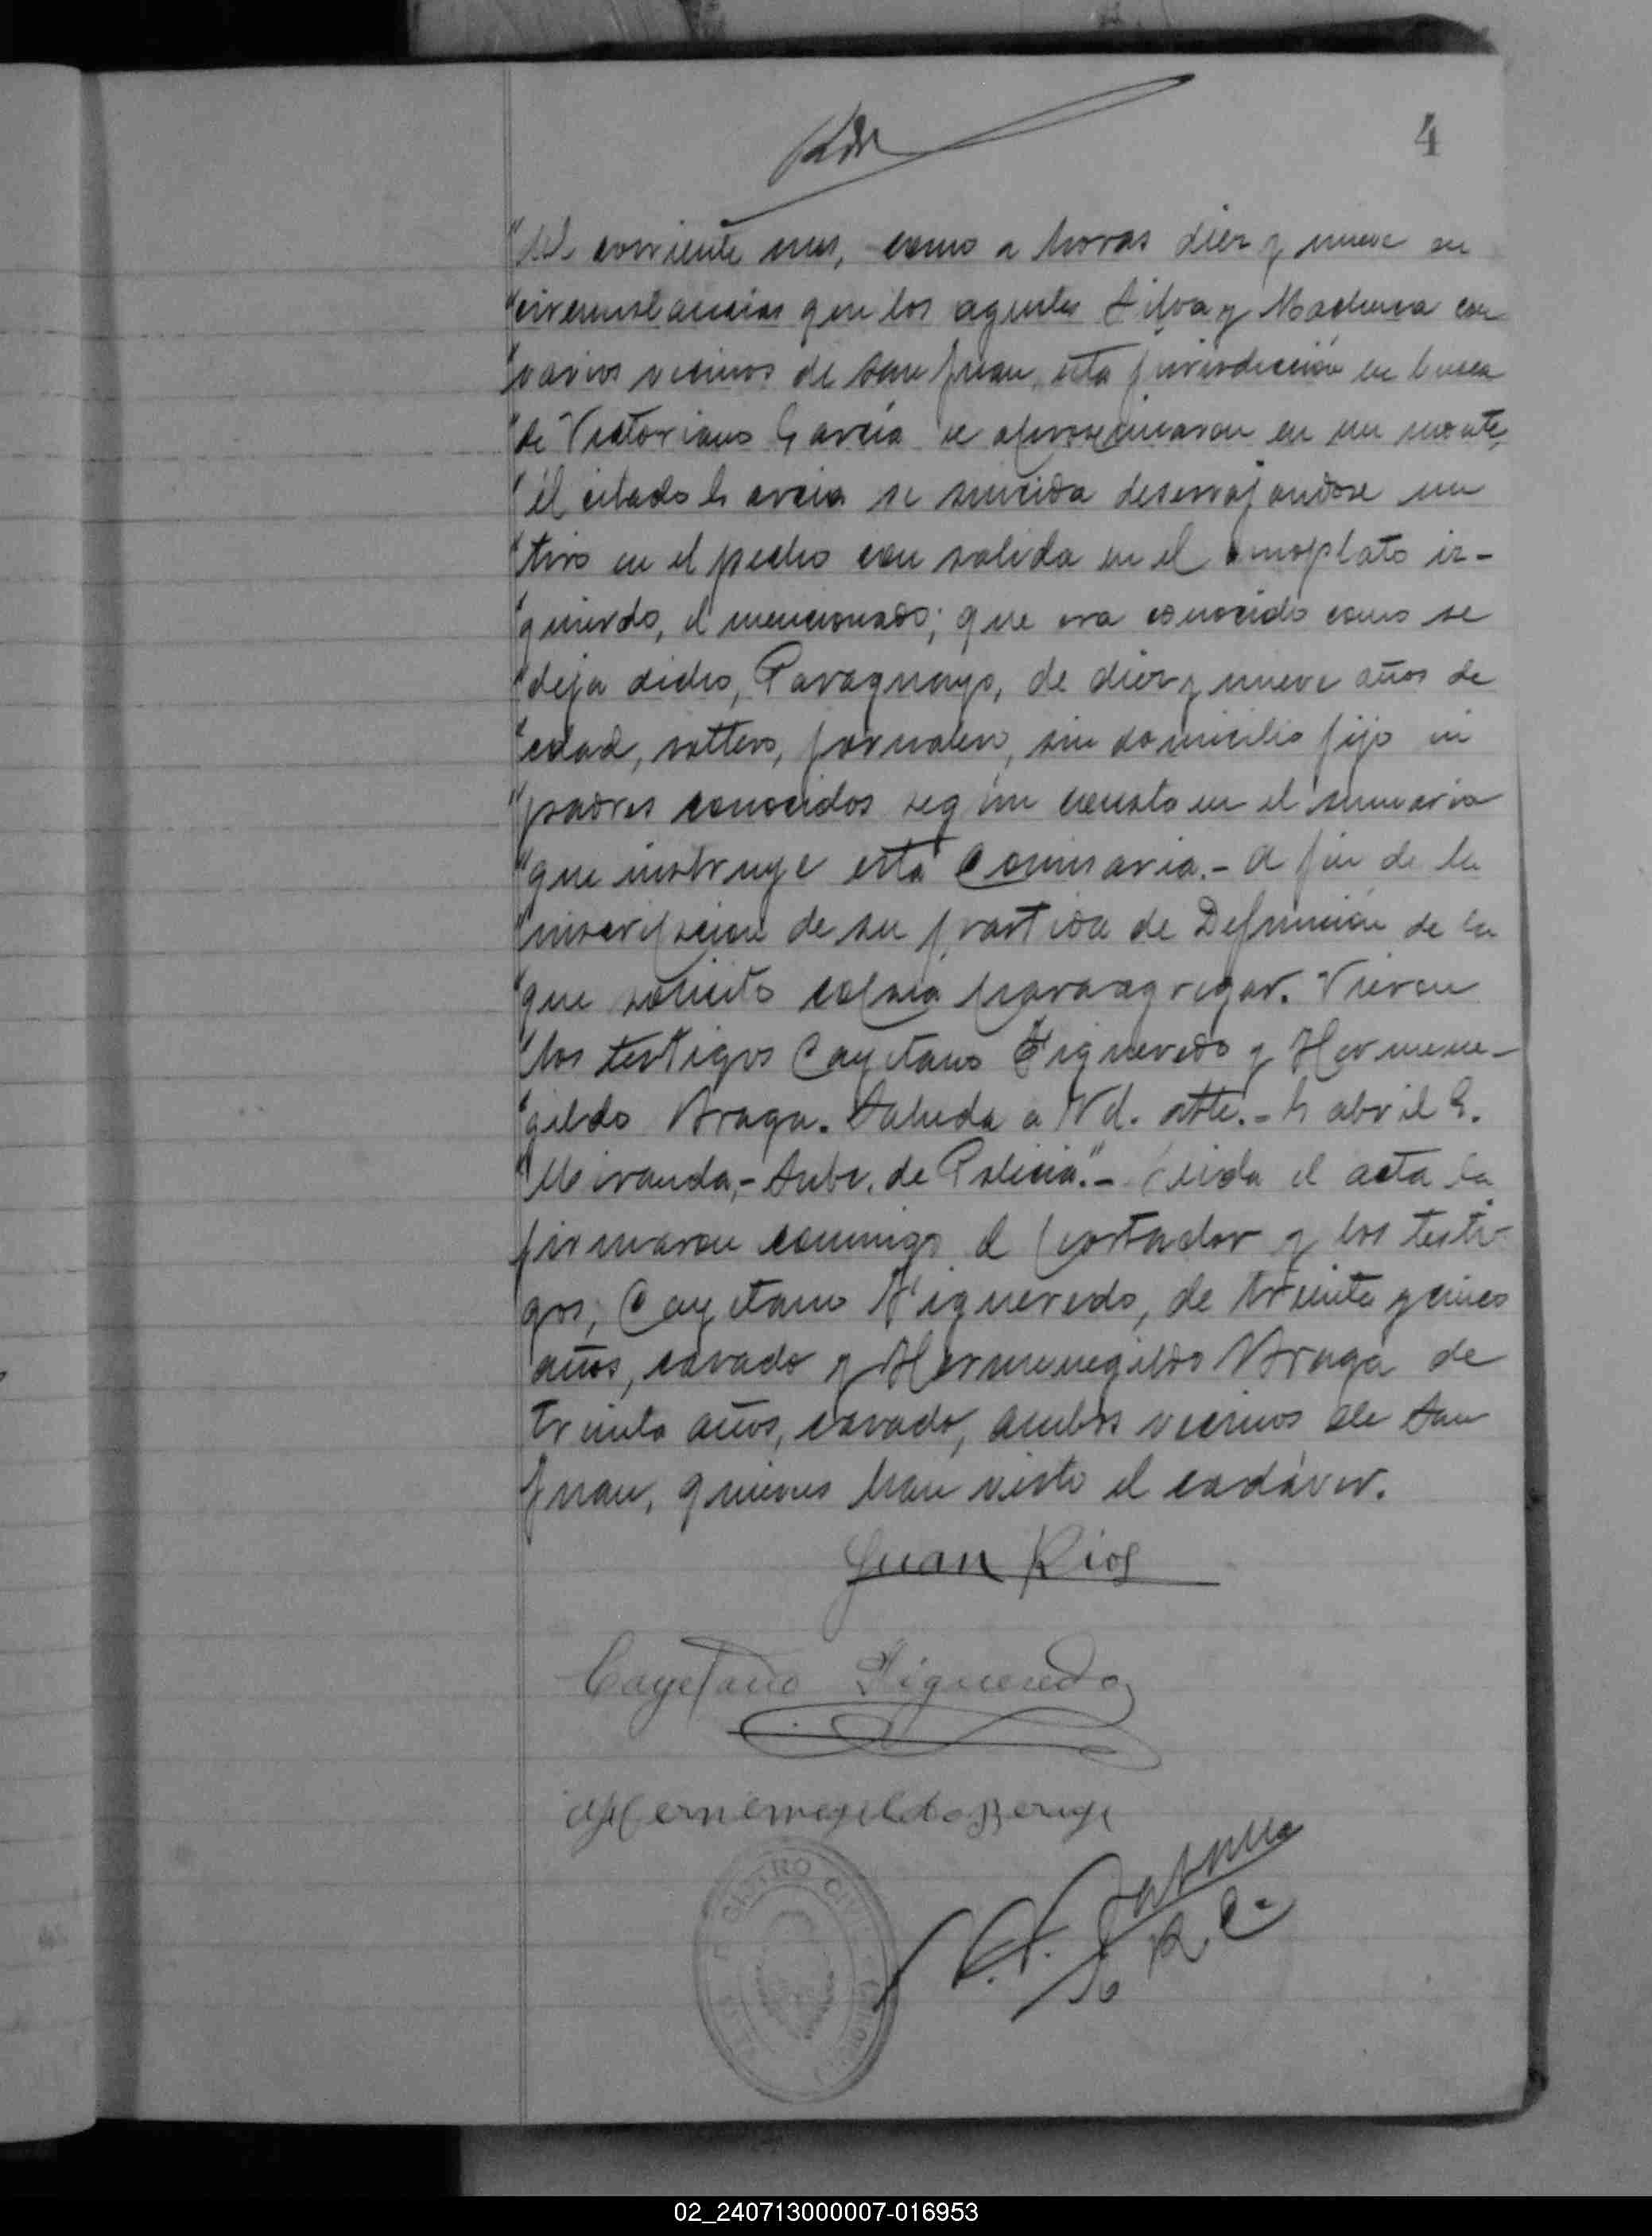 4
"del corriente mes, como a horas diez y nueve en
"circunstancias que los agentes Silva y Machuca con
"varios vecinos de San Juan, esta jurisdicción en busca
"de Victoriano García se aproscimaron en un monte,
"él citado García se suicida deserrajandose un
"tiro en el pecho con salida en el omoplato iz-
"quierdo, el mencionado; que era conocido como se
"deja dicho, Paraguayo, de diez y nueve años de
"edad, soltero, jornalero, sin domicilio fijo ni
"padres conocidos según consta en el sumario
"que instruye esta Comisaria.- A fin de la
"inscripcion de su partida de Defunción de la
"que solicito copia para agregar. Vieron
"los testigos Cayetano Figueredo y Hermene-
"gildo Braga. Saluda a Vd. atte.- Gabriel E.
"Miranda,- Subc. de Policia".- Leida el acta la
firmaron conmigo el portador y los testi-
gos, Cayetano Figueredo, de treinta y cinco
años, casado y Hermenegildo Braga de
treinta años, casado, ambos vecinos de San
Juan, quienes han visto el cadáver.
Juan Rios
Cayetano Figueredo
Hermenegildo
REGISTRO CIVIL
02_240713000007-016953